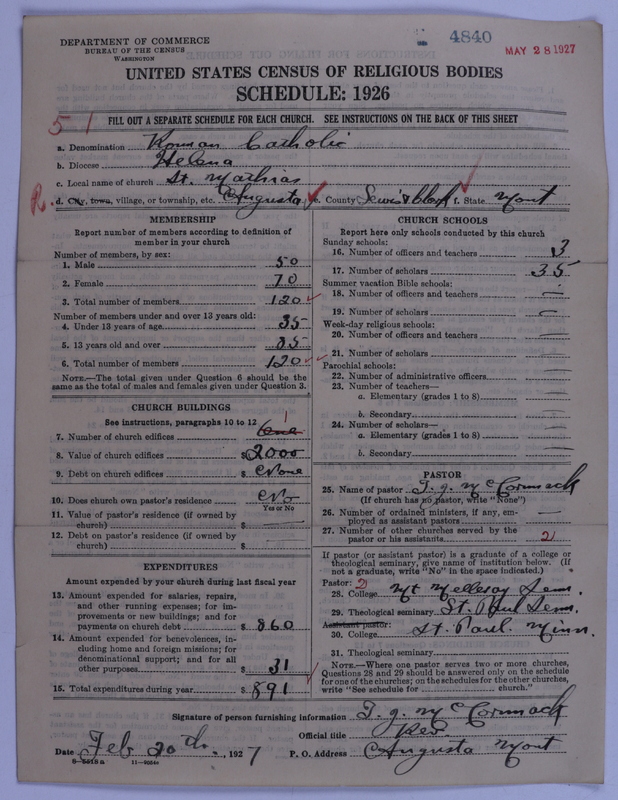 4840
MAY 28 1927
DEPARTMENT OF COMMERCE
BUREAU OF THE CENSUS
WASHINGTON
UNITED STATES CENSUS OF RELIGIOUS BODIES
SCHEDULE: 1926
51
FILL OUT A SEPARATE SCHEDULE FOR EACH CHURCH. SEE INSTRUCTIONS ON THE BACK OF THIS SHEET
a. Denomination Roman Catholic
b. Diocese Helena
c. Local name of church St. Mathias
R. d. City, town, village, or township, etc. Augusta e. County Lewis & Clark f. State Mont
MEMBERSHIP
Report number of members according to definition of
member in your church
Number of members, by sex:
1. Male 50
2. Female 70
3. Total number of members 120
Number of members under and over 13 years old:
4. Under 13 years of age 35
5. 13 years old and over 85
6. Total number of members 120
NOTE.—The total given under Question 6 should be the
same as the total of males and females given under Question 3.
CHURCH BUILDINGS
See instructions, paragraphs 10 to 12
1
7. Number of church edifices One
8. Value of church edifices $2000
9. Debt on church edifices $ None
10. Does church own pastor's residence No
Yes or No
11. Value of pastor's residence (if owned by
church) $
12. Debt on pastor's residence (if owned by
church) $
EXPENDITURES
Amount expended by your church during last fiscal year
13. Amount expended for salaries, repairs,
and other running expenses; for im-
provements or new buildings; and for
payments on church debt $ 860
14. Amount expended for benevolences, in-
cluding home and foreign missions; for
denominational support; and for all
other purposes $ 31
15. Total expenditures during year $ 891
CHURCH SCHOOLS
Report here only schools conducted by this church
Sunday schools:
16. Number of officers and teachers 3
17. Number of scholars 35
Summer vacation Bible schools:
18. Number of officers and teachers —
19. Number of scholars —
Week-day religious schools:
20. Number of officers and teachers —
21. Number of scholars —
Parochial schools:
22. Number of administrative officers —
23. Number of teachers—
a. Elementary (grades 1 to 8) —
b. Secondary —
24. Number of scholars—
a. Elementary (grades 1 to 8) —
b. Secondary —
PASTOR
25. Name of pastor T. J. McCormack
(If church has no pastor, write "None")
26. Number of ordained ministers, if any, em-
ployed as assistant pastors —
27. Number of other churches served by the
pastor or his assistants 2
If pastor (or assistant pastor) is a graduate of a college or
theological seminary, give name of institution below. (If
not a graduate, write "No" in the space indicated.)
Pastor: 2
28. College Mt Melleray Sem.
29. Theological seminary St. Paul Sem.
Assistant pastor:
30. College St. Paul. Minn.
31. Theological seminary
NOTE.—Where one pastor serves two or more churches,
Questions 28 and 29 should be answered only on the schedule
for one of the churches; on the schedules for the other churches,
write "See schedule for church."
Signature of person furnishing information T. J. McCormack
Official title Rev
Date Feb 20th, 1927 P. O. Address Augusta Mont
11—9054a